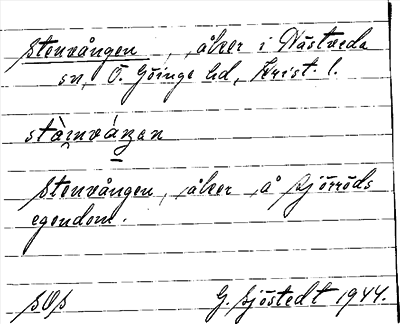 Stenvången, åker i Nästveda
sn, Ö. Göinge hd, Krist. l.
stὰmváŋan
Stenvången, åker å Sjöröds
egendom.
SOS G. Sjöstedt 1944.